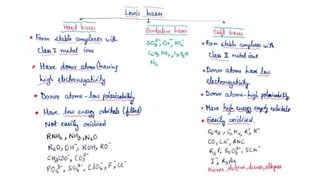 Lewis bases
Hard bases
• Form stable complexes with
class I metal ions
• Have donor atoms (having
high electronegativity
• Donor atoms - low polarisability
• Have low energy orbitals (filled)
Not easily oxidised
RNH2, NH3, N2O
R2O, OH-, ROH, RO-
CH3COO-, CO3 2-
PO4 3-, SO4 2-, ClO4-, F-, Cl-
Borderline bases
SO3 2-, Br-, NO2-
C6H5NH2, C5H5N
N2
Soft bases
• Form stable complexes with
class II metal ions
• Donor atoms have low
electronegativity
• Donor atoms - high polarisability
• Have high energy empty orbitals
• Easily oxidised.
C6H6, C2H4, R-, H-
CO, CN-, RNC
R3P, S2O3 2-, SCN-
I-, R3As